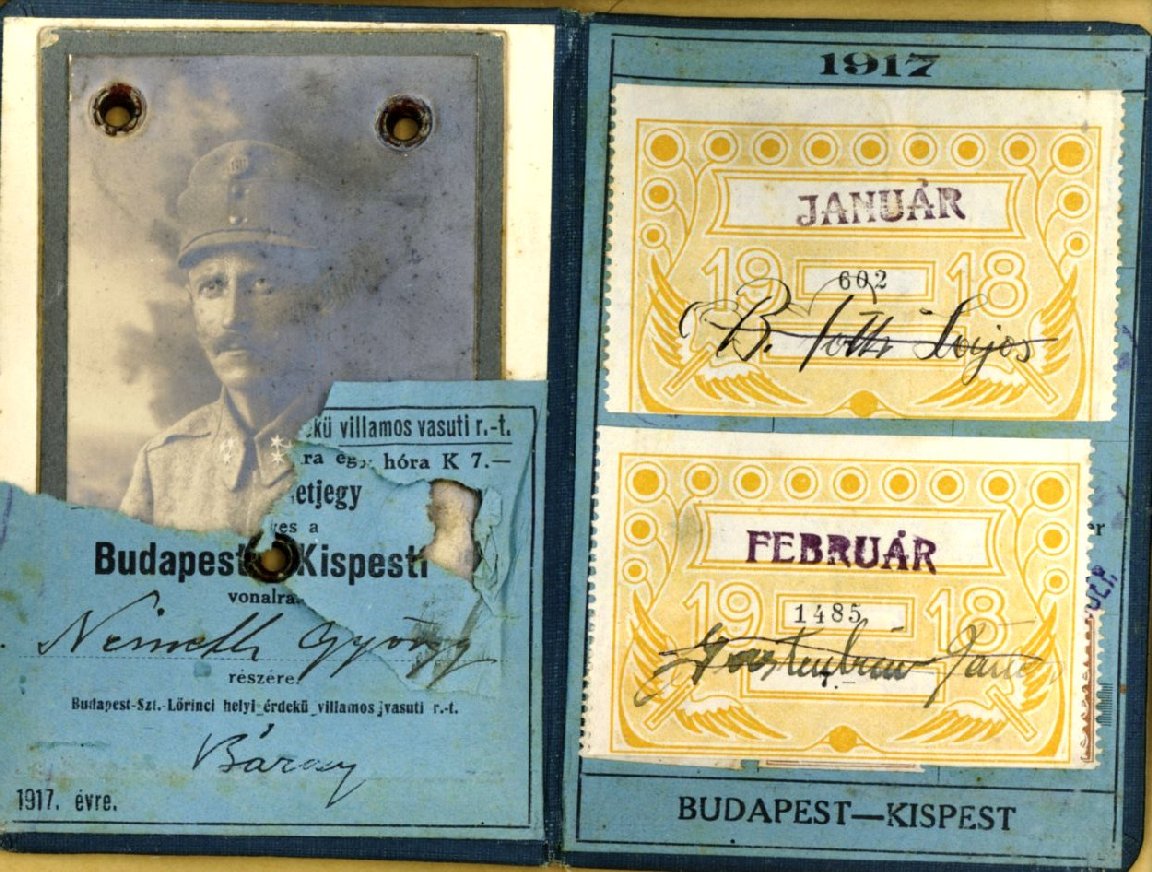 ekü villamos vasuti r.-t.
ra egy hóra K 7.—
etjegy
es a
Budapest Kispesti
vonalra
Nemeth György
részére.
Budapest-Szt.-Lőrinci helyi érdekü villamos vasuti r.-t.
Bárány
1917. évre.
1917
JANUÁR
19 18
602
B. Tóth Lajos
FEBRUÁR
19 18
1485
János
BUDAPEST—KISPEST